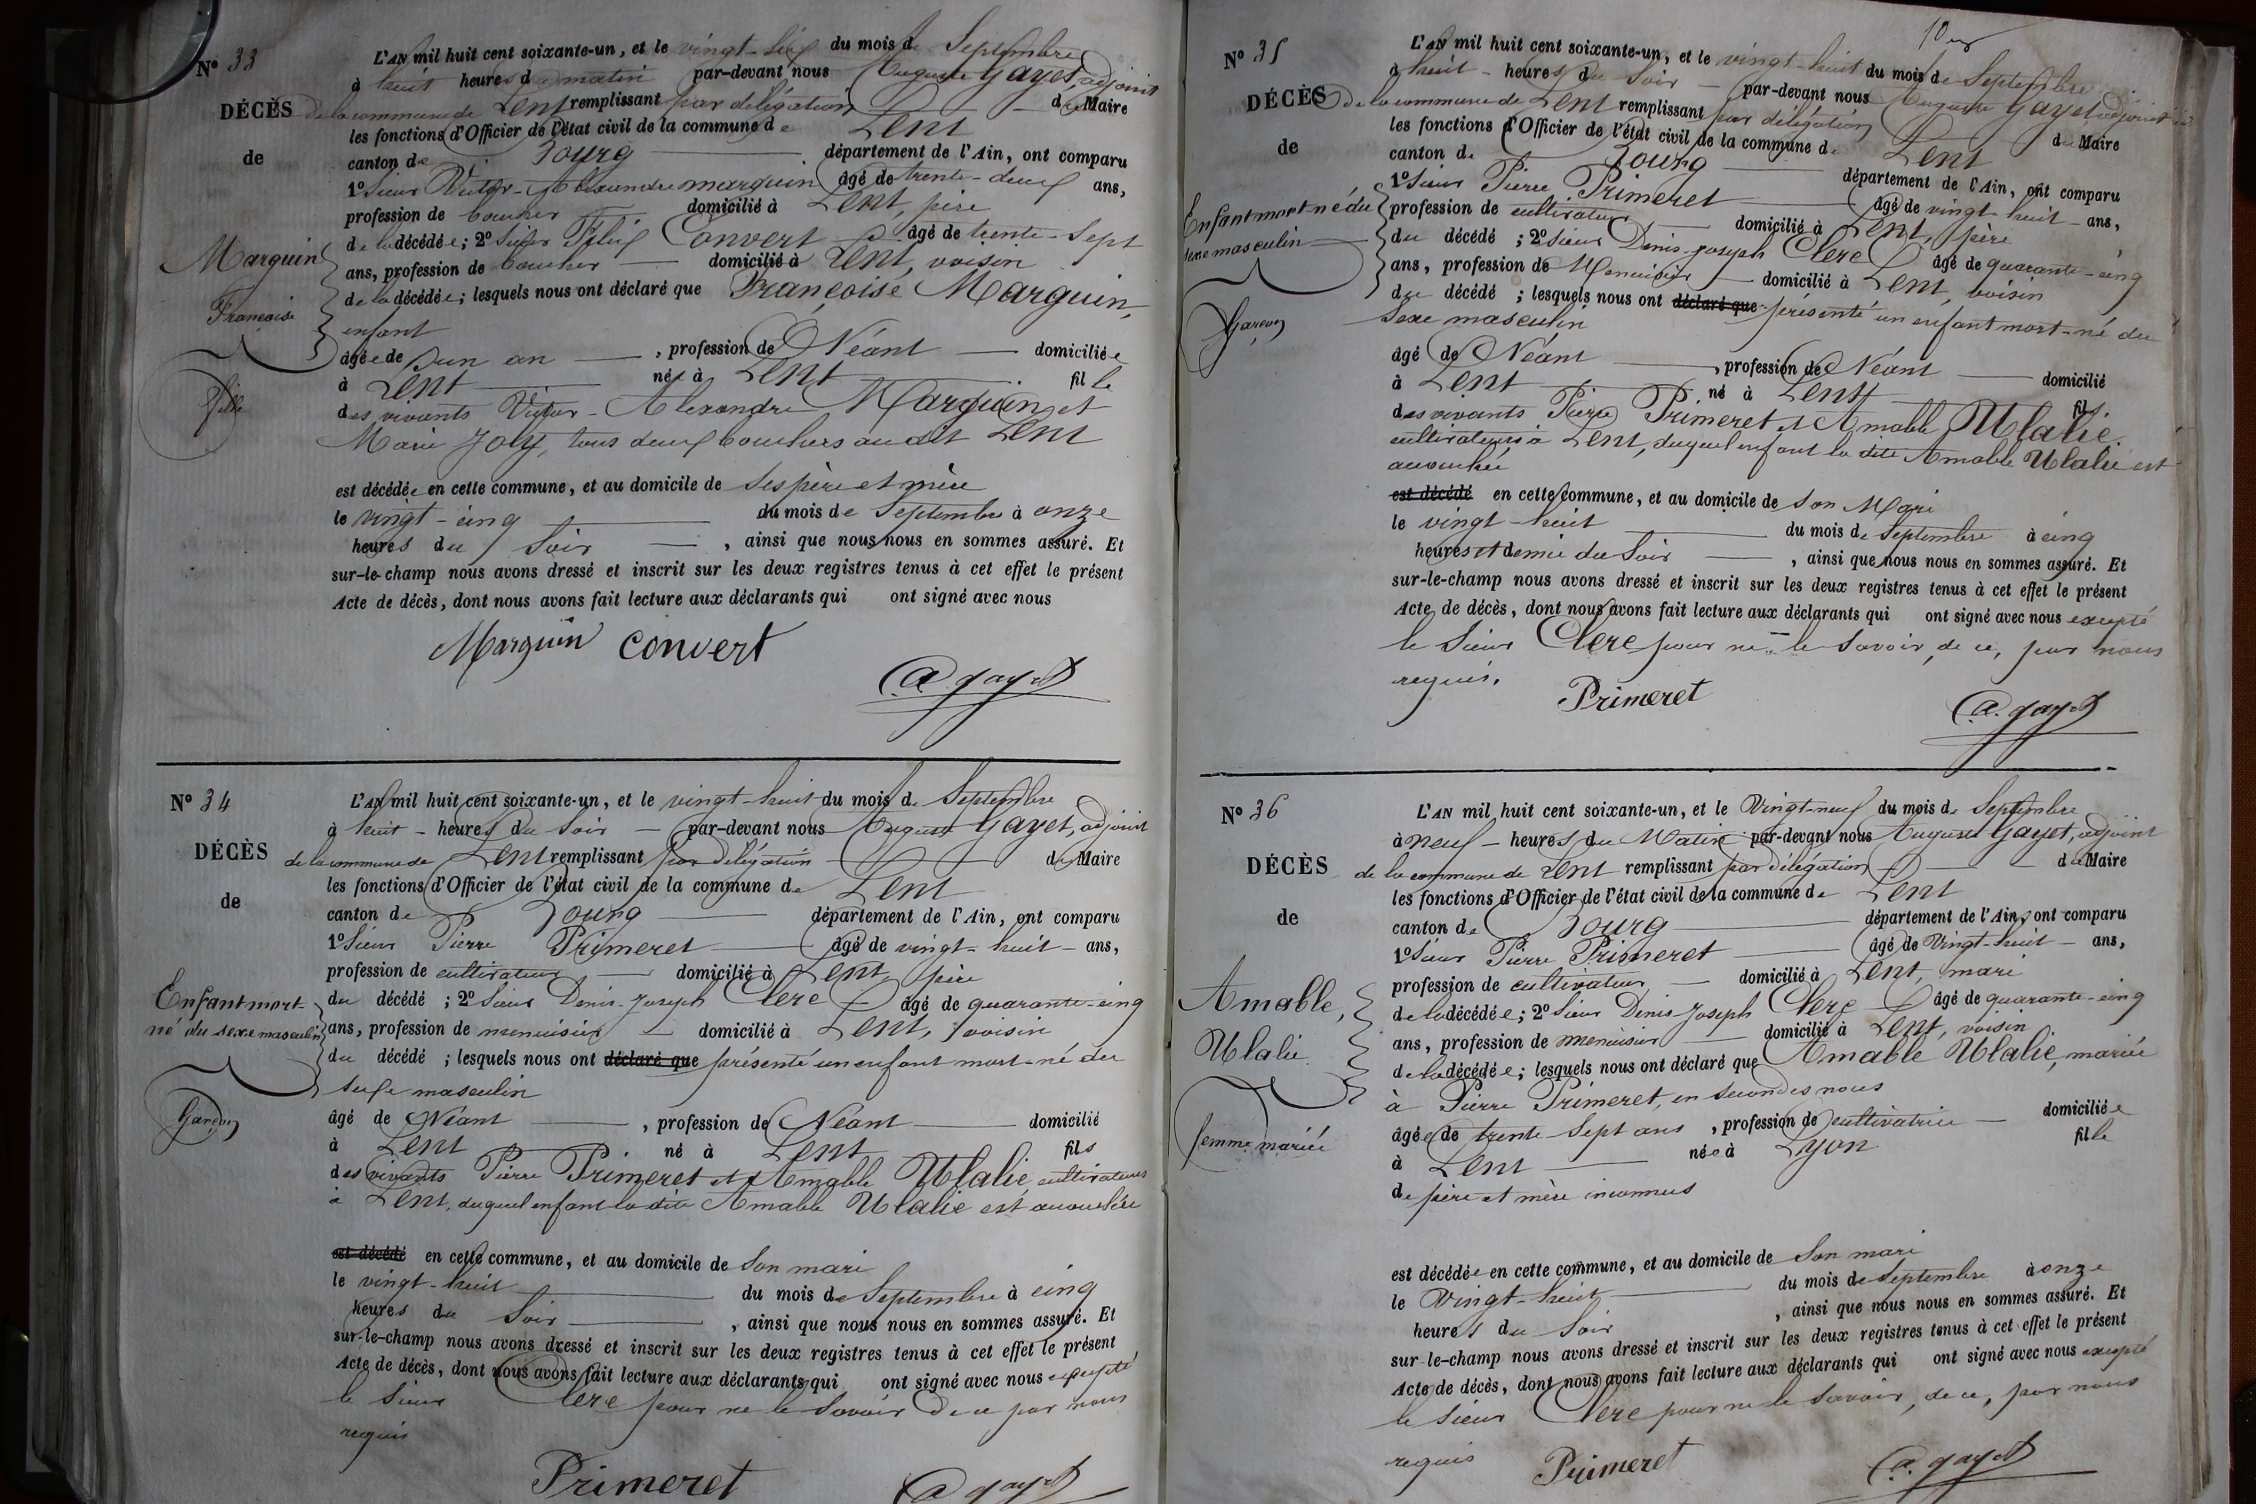 N° 33
DÉCÈS
de
Marguin
Françoise
fille
L'AN mil huit cent soixante-un, et le vingt-six du mois de Septembre
à huit heures du matin par-devant nous Auguste Gayet, adjoint
de la commune de Lent remplissant par délégation du Maire
les fonctions d'Officier de l'état civil de la commune de Lent
canton de Bourg département de l'Ain, ont comparu
1° Sieur Victor-Alexandre Marguin âgé de trente-deux ans,
profession de boucher domicilié à Lent, père
de la décédée; 2° Sieur Félix Convert âgé de trente-sept
ans, profession de boucher domicilié à Lent, voisin
de la décédée; lesquels nous ont déclaré que Françoise Marguin,
enfant
âgée de d'un an, profession de Néant domiciliée
à Lent née à Lent fille
des vivants Victor-Alexandre Marguin et
Marie Joly, tous deux bouchers au dit Lent
est décédée en cette commune, et au domicile de ses père et mère
le vingt-cinq du mois de Septembre à onze
heures du soir, ainsi que nous nous en sommes assuré. Et
sur-le-champ nous avons dressé et inscrit sur les deux registres tenus à cet effet le présent
Acte de décès, dont nous avons fait lecture aux déclarants qui ont signé avec nous
Marguin Convert
A. Gayet
N° 34
DÉCÈS
de
Enfant mort-
né du sexe masculin
Garçon
L'AN mil huit cent soixante-un, et le vingt-huit du mois de Septembre
à huit heures du soir par-devant nous Auguste Gayet, adjoint
de la commune de Lent remplissant par délégation du Maire
les fonctions d'Officier de l'état civil de la commune de Lent
canton de Bourg département de l'Ain, ont comparu
1° Sieur Pierre Primeret âgé de vingt-huit ans,
profession de cultivateur domicilié à Lent, père
du décédé; 2° Sieur Denis-Joseph Clerc âgé de quarante-cinq
ans, profession de menuisier domicilié à Lent, voisin
du décédé; lesquels nous ont déclaré que présenté un enfant mort-né du
sexe masculin
âgé de Néant, profession de Néant domicilié
à Lent né à Lent fils
des vivants Pierre Primeret et Amable Ulalie cultivateurs
à Lent, duquel enfant la dite Amable Ulalie est accouchée
est décédé en cette commune, et au domicile de son mari
le vingt-huit du mois de Septembre à cinq
heures du soir, ainsi que nous nous en sommes assuré. Et
sur-le-champ nous avons dressé et inscrit sur les deux registres tenus à cet effet le présent
Acte de décès, dont nous avons fait lecture aux déclarants qui ont signé avec nous excepté
le Sieur Clerc pour ne le savoir de ce par nous
requis
Primeret A. Gayet
N° 35
DÉCÈS
de
Enfant mort-né du
sexe masculin
Garçon
L'AN mil huit cent soixante-un, et le vingt-huit du mois de Septembre
à huit heures du soir par-devant nous Auguste Gayet adjoint
de la commune de Lent remplissant par délégation du Maire
les fonctions d'Officier de l'état civil de la commune de Lent
canton de Bourg département de l'Ain, ont comparu
1° Sieur Pierre Primeret âgé de vingt-huit ans,
profession de cultivateur domicilié à Lent, père
du décédé; 2° Sieur Denis-Joseph Clerc âgé de quarante-cinq
ans, profession de Menuisier domicilié à Lent, voisin
du décédé; lesquels nous ont déclaré que présenté un enfant mort-né du
sexe masculin
âgé de Néant, profession de Néant domicilié
à Lent né à Lent fils
des vivants Pierre Primeret et Amable Ulalie
cultivateurs à Lent, duquel enfant la dite Amable Ulalie est
accouchée
est décédé en cette commune, et au domicile de son Mari
le vingt-huit du mois de Septembre à cinq
heures et demie du soir, ainsi que nous nous en sommes assuré. Et
sur-le-champ nous avons dressé et inscrit sur les deux registres tenus à cet effet le présent
Acte de décès, dont nous avons fait lecture aux déclarants qui ont signé avec nous excepté
le Sieur Clerc pour ne le savoir, de ce, par nous
requis.
Primeret
A. Gayet
N° 36
DÉCÈS
de
Amable,
Ulalie
femme mariée
L'AN mil huit cent soixante-un, et le Vingt-neuf du mois de Septembre
à neuf heures du Matin par-devant nous Auguste Gayet, adjoint
de la commune de Lent remplissant par délégation du Maire
les fonctions d'Officier de l'état civil de la commune de Lent
canton de Bourg département de l'Ain, ont comparu
1° Sieur Pierre Primeret âgé de Vingt-huit ans,
profession de cultivateur domicilié à Lent, mari
de la décédée; 2° Sieur Denis Joseph Clerc âgé de quarante-cinq
ans, profession de menuisier domicilié à Lent, voisin
de la décédée; lesquels nous ont déclaré que Amable Ulalie, mariée
à Pierre Primeret, en secondes noces
âgée de trente-sept ans, profession de cultivatrice domiciliée
à Lent née à Lyon fille
de père et mère inconnus
est décédée en cette commune, et au domicile de son mari
le Vingt-huit du mois de Septembre à onze
heures du soir, ainsi que nous nous en sommes assuré. Et
sur-le-champ nous avons dressé et inscrit sur les deux registres tenus à cet effet le présent
Acte de décès, dont nous avons fait lecture aux déclarants qui ont signé avec nous excepté
le Sieur Clerc pour ne le savoir, de ce, par nous
requis
Primeret A. Gayet